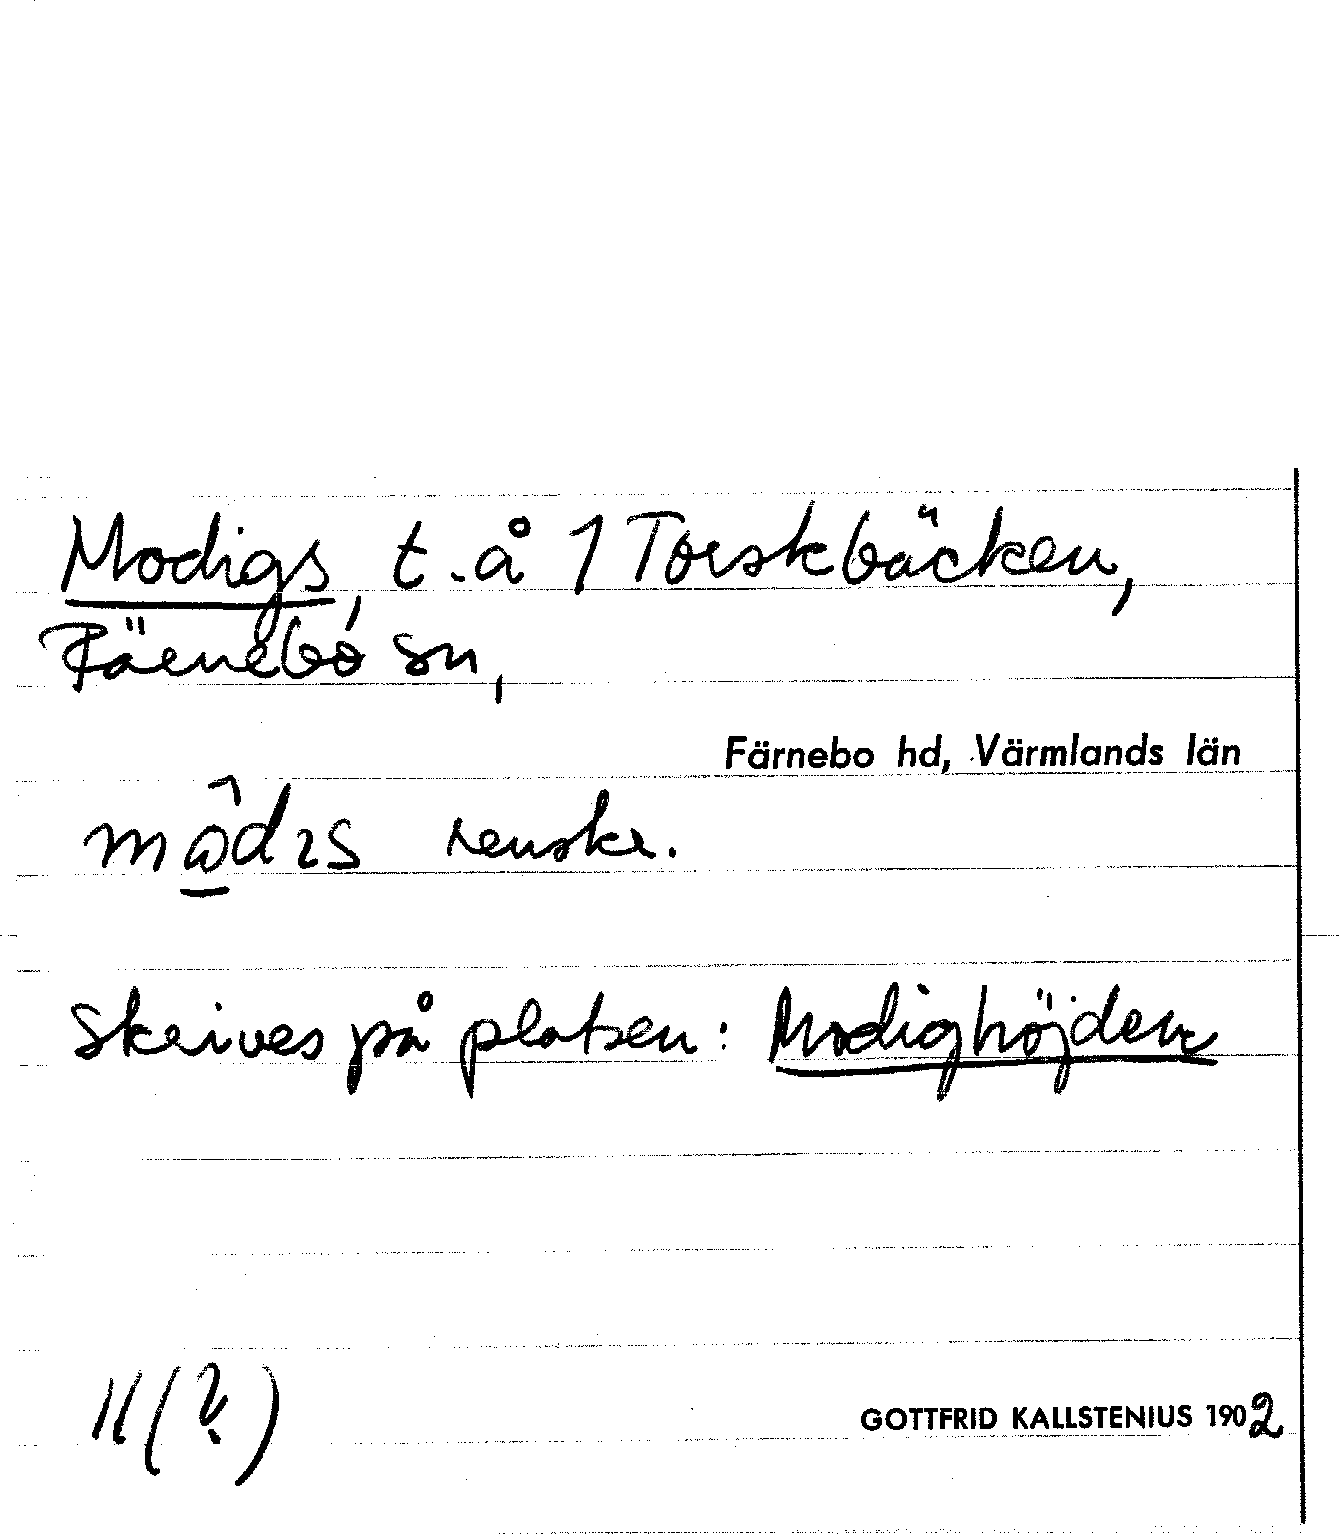 Modigs, t.å 1 Torskbäcken,
Färnebo sn,
Färnebo hd, Värmlands län
renskr.
Skrives på platsen: Modighöjden
GOTTFRID KALLSTENIUS 1902